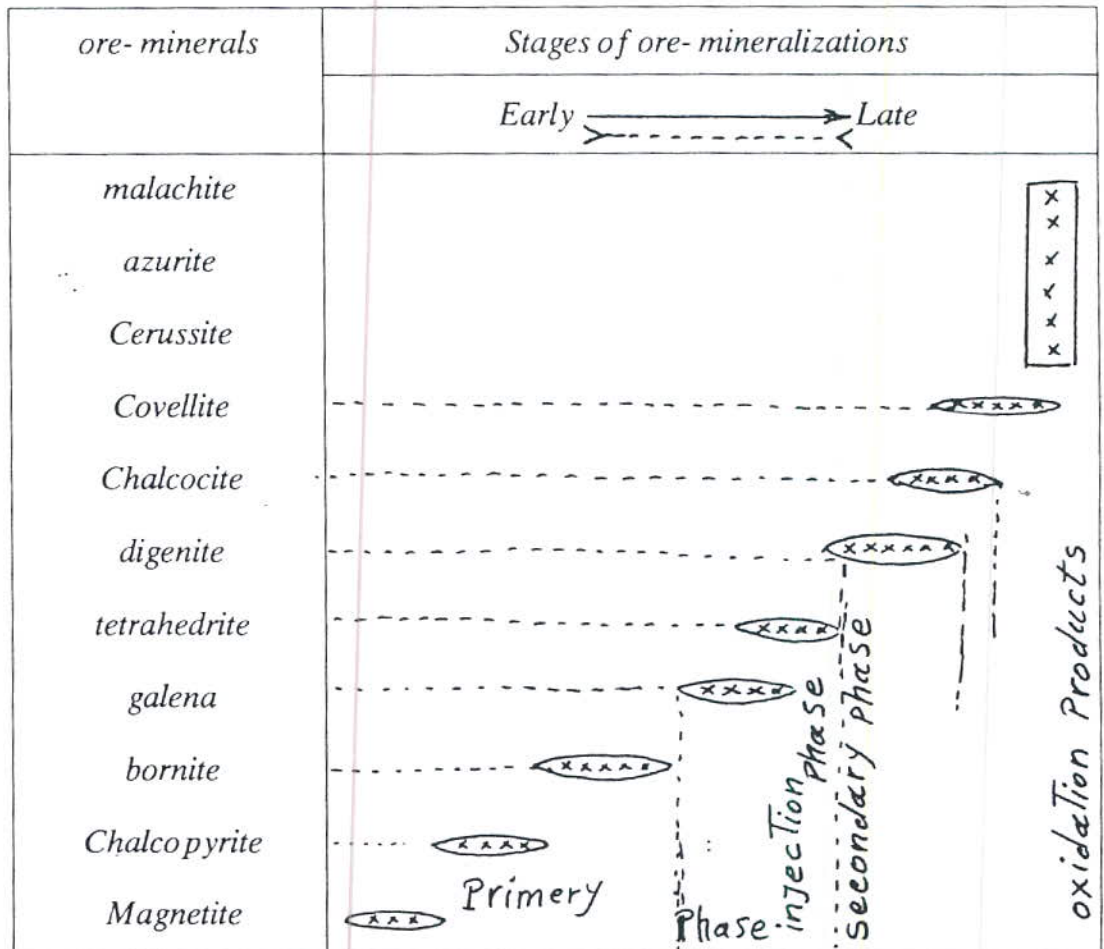 ore- minerals
Stages of ore- mineralizations
Early
Late
malachite
azurite
Cerussite
Covellite
Chalcocite
digenite
tetrahedrite
galena
bornite
Chalcopyrite
Magnetite
Primery
Phase
injection phase
Secondary phase
oxidation Products